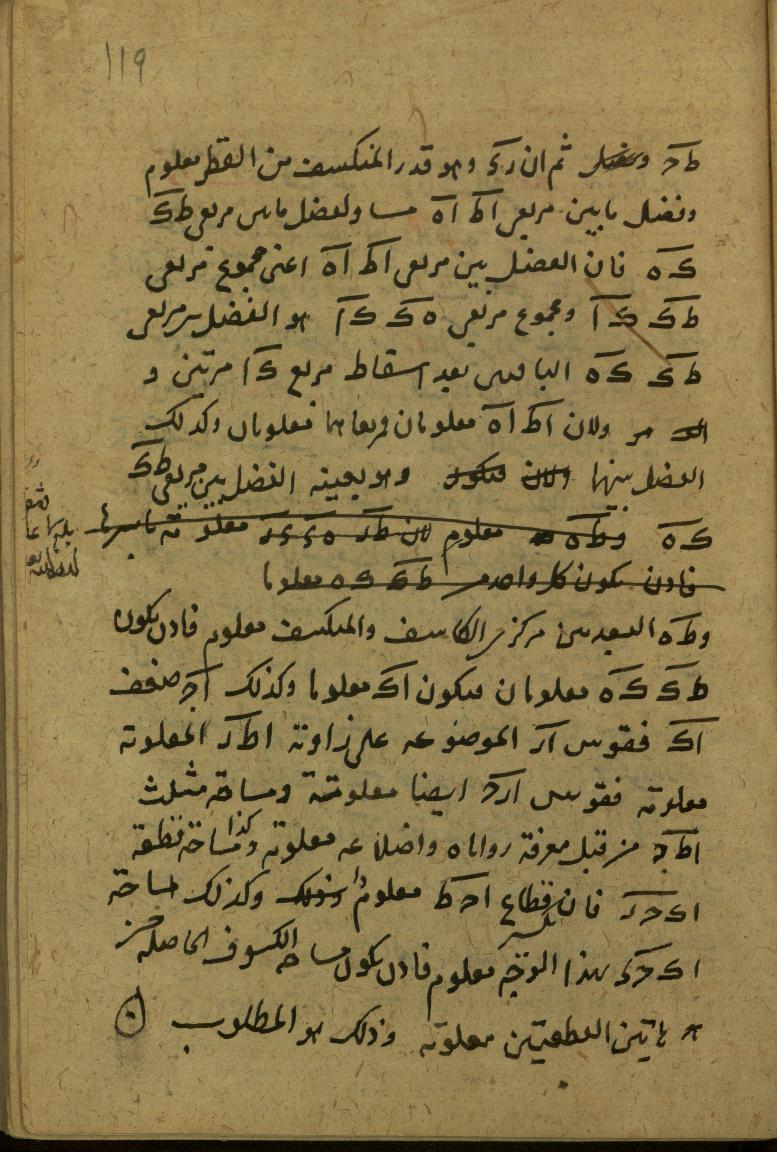 ١١٩
طح ثم ان رى وهو قدر المنكسف من القطر معلوم
وفضل ما بين مربعى اط اه مساو لفضل ما بين مربعى طك
كه فان الفضل بين مربعى اط اه اعنى مجموع مربعى
طك كا ومجموع مربعى هك كا هو الفضل بين مربعى
طك كه الباقيين بعد اسقاط مربع كا مرتين و
ولان اط اه معلومان فمربعاهما معلومان وكذلك
الفضل بينهما ولان فيكون وهو بعينه الفضل بين مربعى طك
كه وطه معلوم لان طر معلومة باسرها
فاذن يكون كل واحد من طك كه معلوما
وطه البعد بين مركزى الكاسف والمنكسف معلوم فاذن يكون
طك كه معلومان فيكون اك معلوما وكذلك اح ضعف
اك فقوس ار الموضوعه على زاوية اطر المعلومة
معلومة فقوس ارح ايضا معلومة ومساحة مثلث
اطح من قبل معرفة زواياه واضلاعه معلومة وكذا مساحة قطعة
اكحر فان قطاع احط معلوم وكذلك مساحة
اكحى بهذا الوجه معلوم فاذن يكون مساحة الكسوف الحاصلة من
هاتين القطعتين معلومة وذلك هو المطلوب